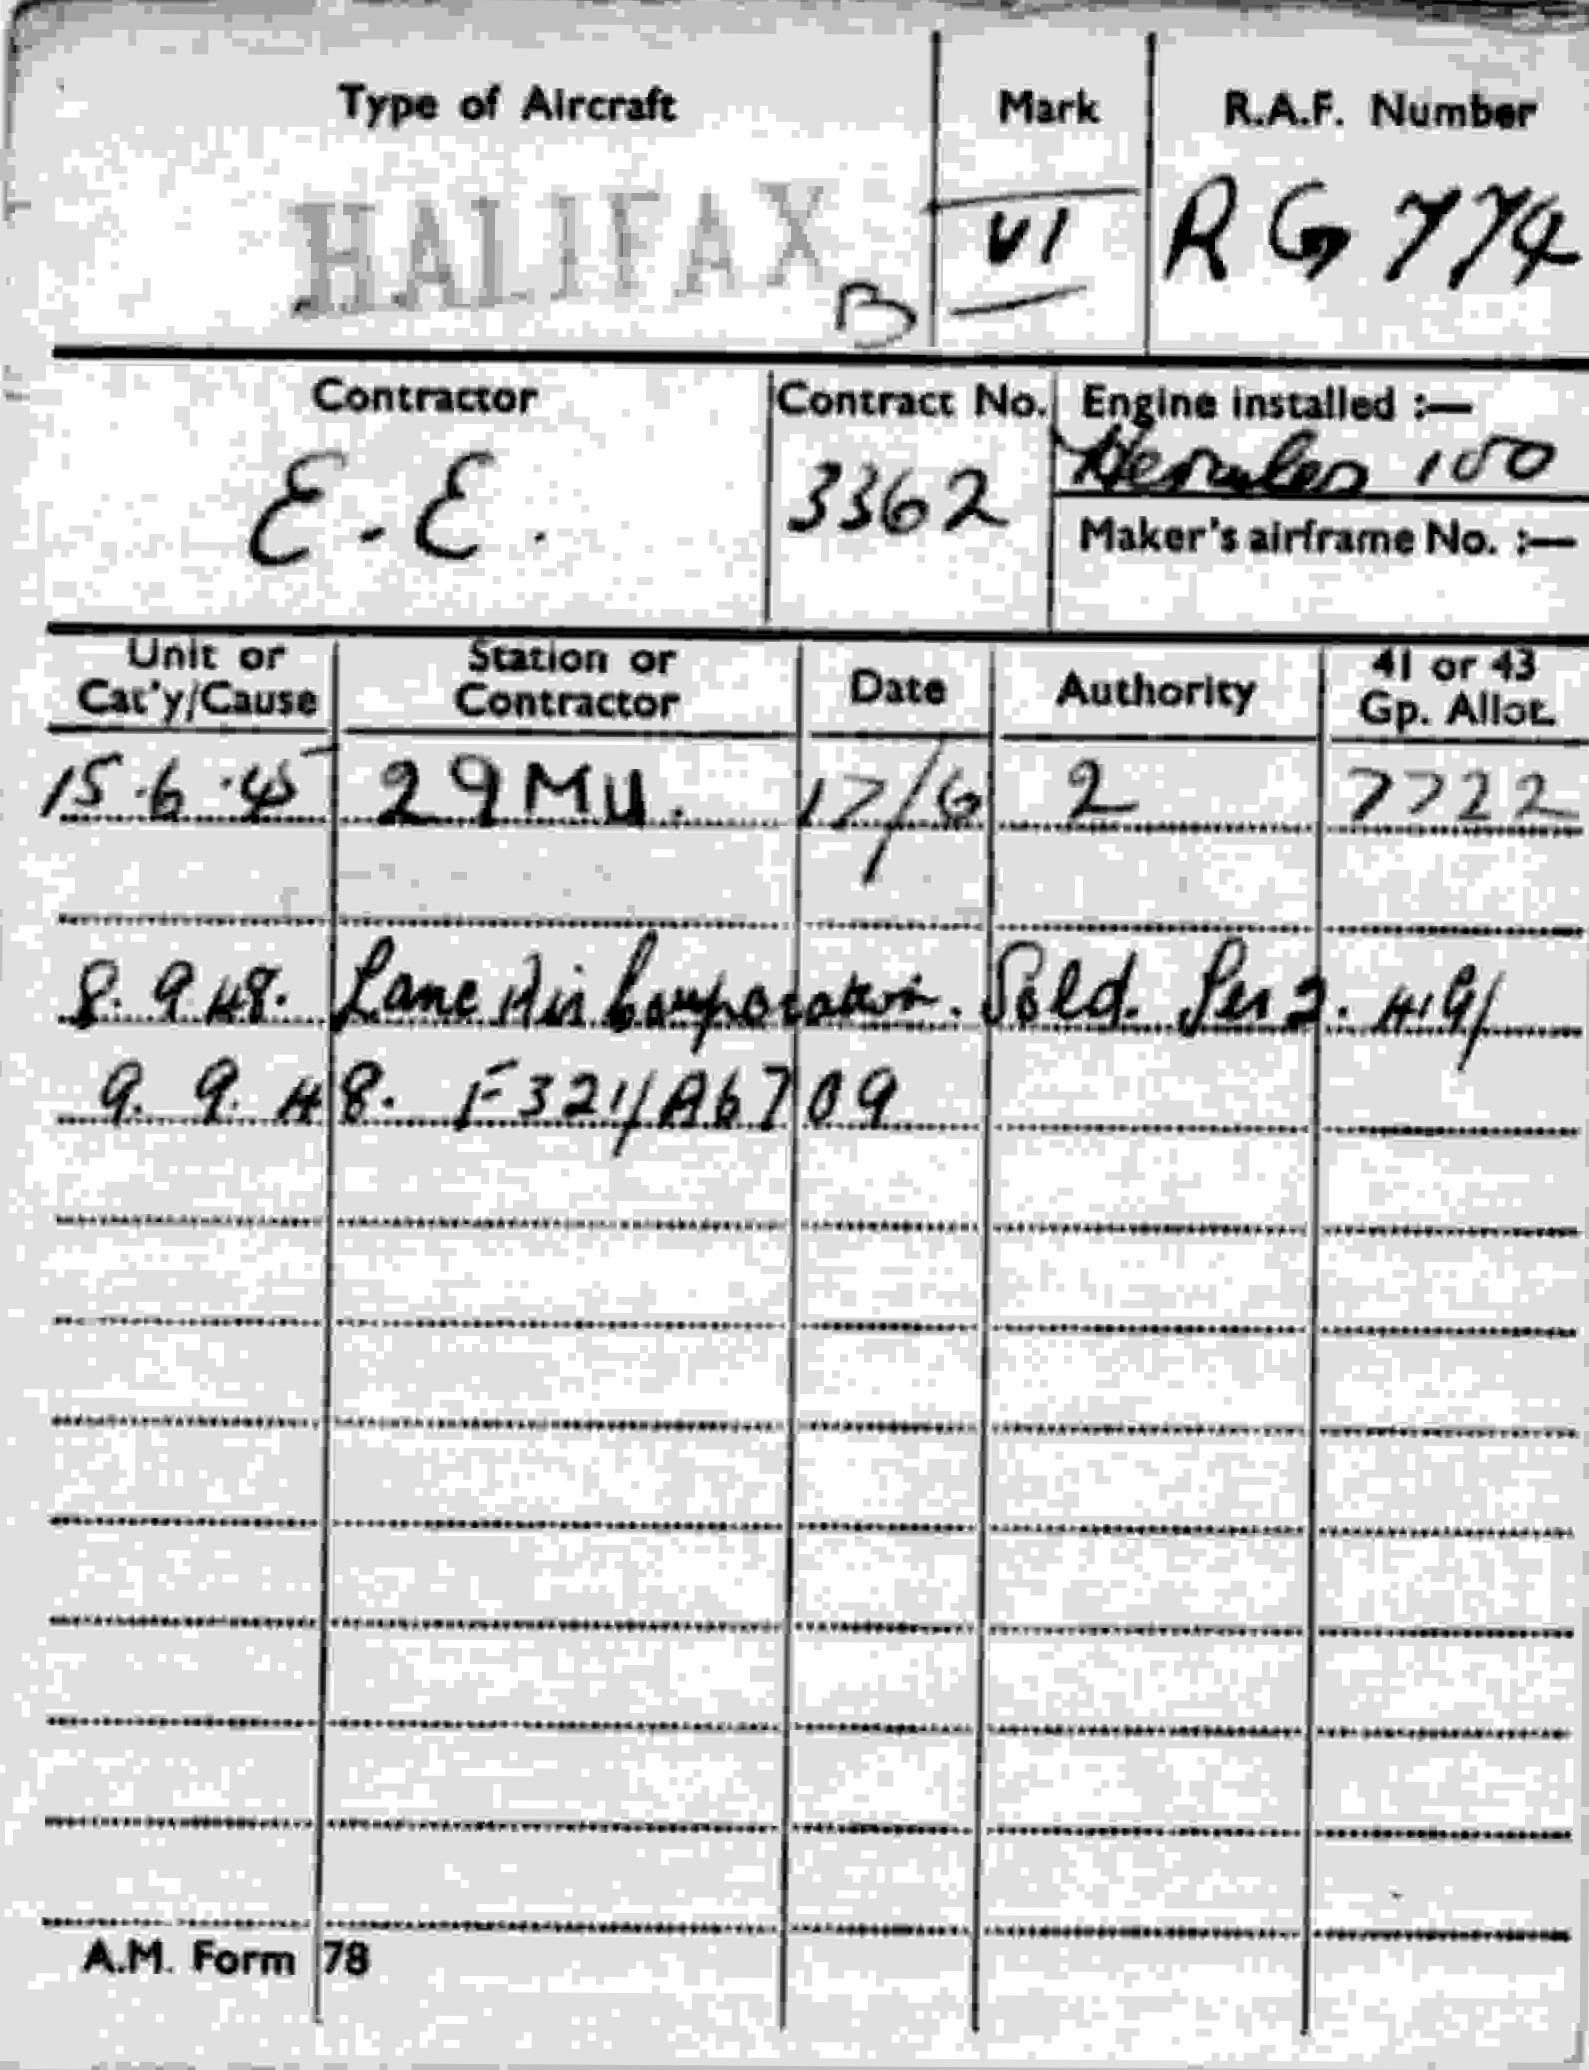 Type of Aircraft Mark R.A.F. Number
HALIFAX B VI RG 774
Contractor Contract No. Engine installed :—
E.E. 3362 Hercules 100
Maker's airframe No. :—
Unit or Cat'y/Cause Station or Contractor Date Authority 41 or 43 Gp. Allot.
15.6.45 29 MU. 17/6 2 7722
8.9.48. Lane Air Sold. Ser 2.
9.9.48. F321/A6709
A.M. Form 78